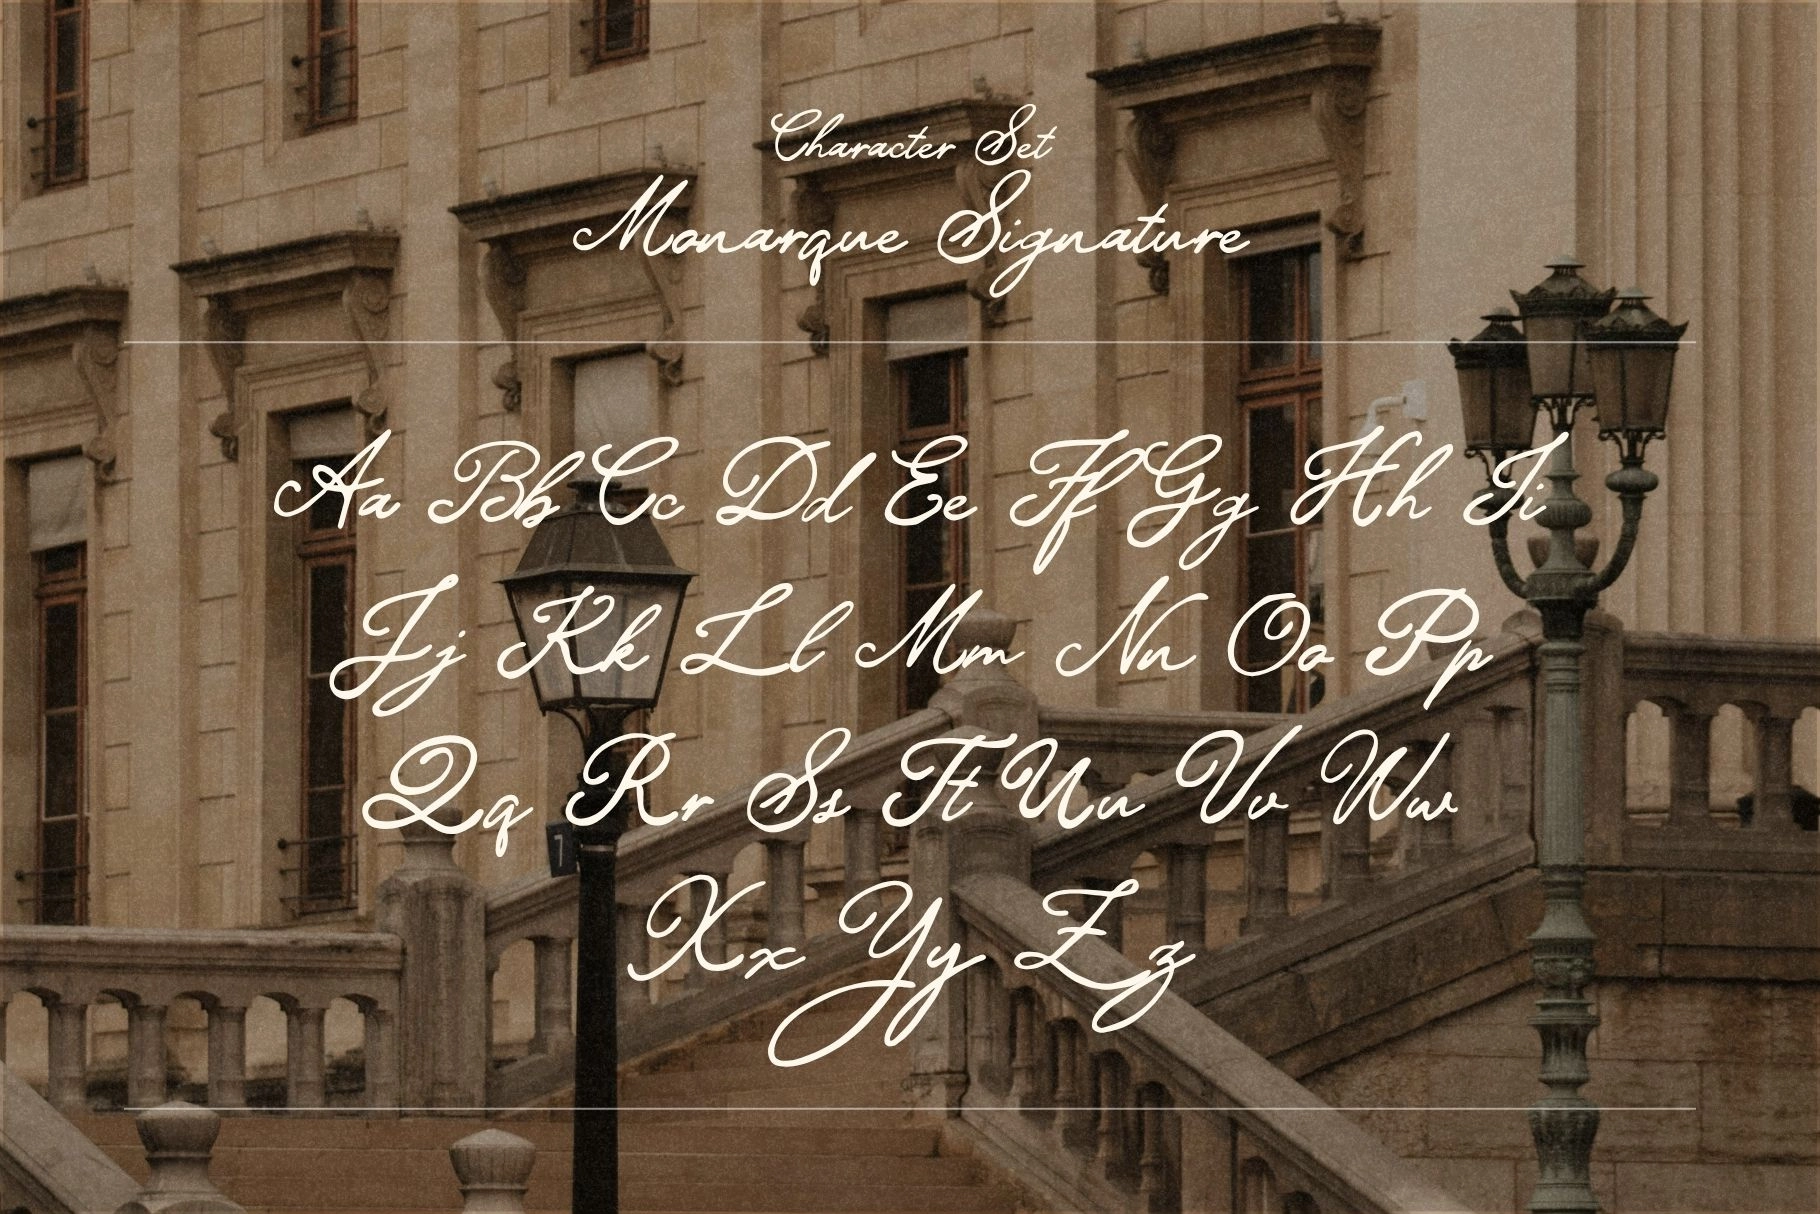 Character Set
Monarque Signature
Aa Bb Cc Dd Ee Ff Gg Hh Ii
Jj Kk Ll Mm Nn Oo Pp
Qq Rr Ss Tt Uu Vv Ww
7
Xx Yy Zz